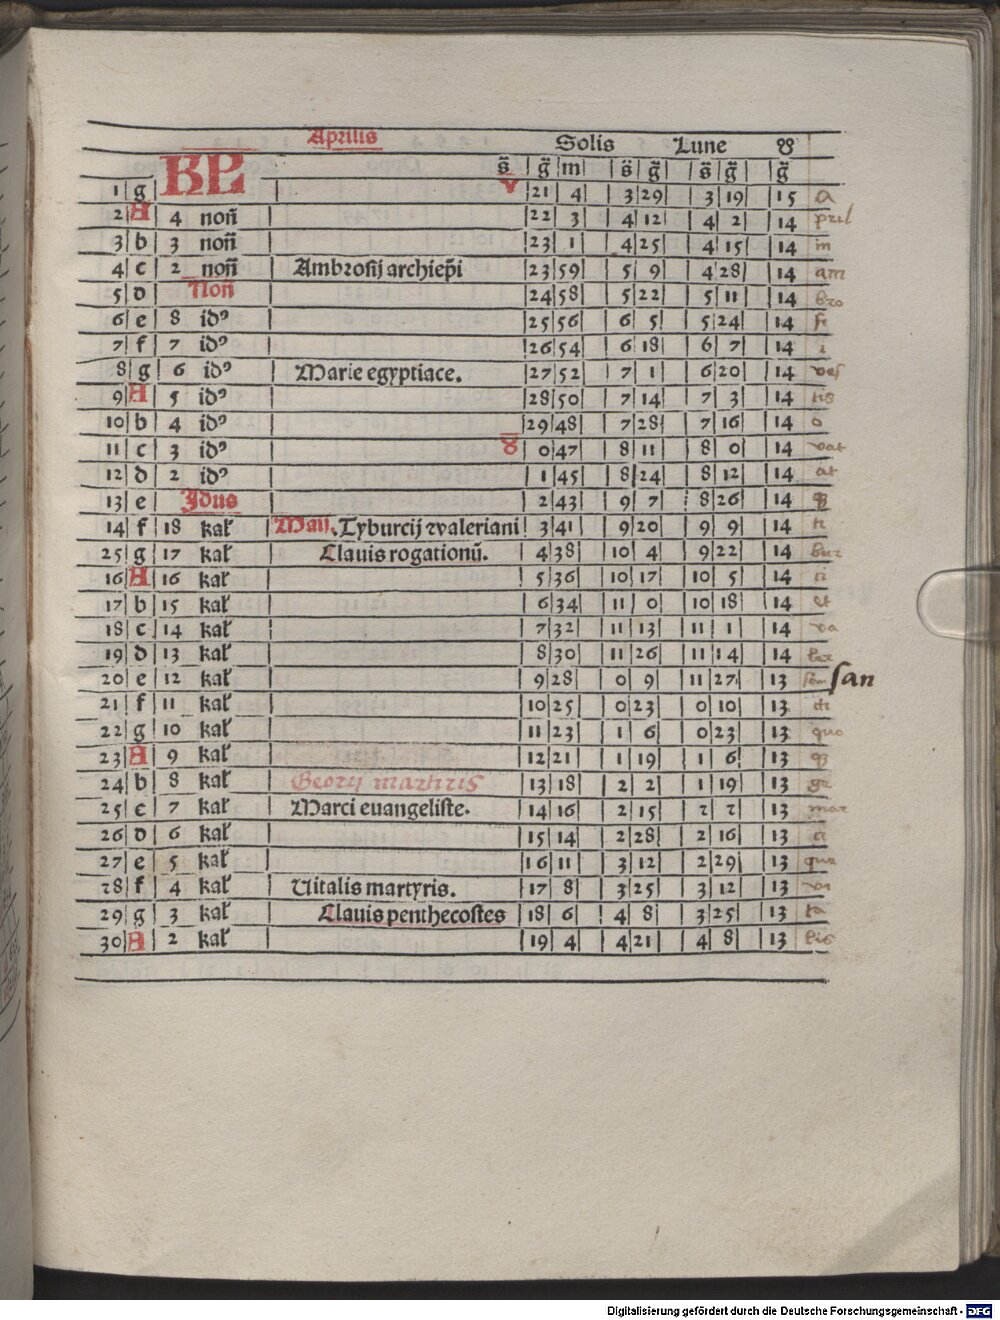 Aprilis Solis Lune ☋
KL s̃ g̃ m s̃ g̃ s̃ g̃ g̃
1 g ♈ 21 4 3 29 3 19 15 a
2 A 4 non̄ 22 3 4 12 4 2 14 pril
3 b 3 non̄ 23 1 4 25 4 15 14 in
4 c 2 non̄ Ambrosij archiep̄i 23 59 5 9 4 28 14 am
5 d Non̄ 24 58 5 22 5 11 14 bro
6 e 8 idꝰ 25 56 6 5 5 24 14 si
7 f 7 idꝰ 26 54 6 18 6 7 14 i
8 g 6 idꝰ Marie egyptiace. 27 52 7 1 6 20 14 ves
9 A 5 idꝰ 28 50 7 14 7 3 14
10 b 4 idꝰ 29 48 7 28 7 16 14 o
11 c 3 idꝰ ♉ 0 47 8 11 8 0 14 vat
12 d 2 idꝰ 1 45 8 24 8 12 14 at
13 e Idus 2 43 9 7 8 26 14 qꝫ
14 f 18 kal̄ Maij. Tyburcij ⁊valeriani 3 41 9 20 9 9 14 ti
25 g 17 kal̄ Clauis rogationū. 4 38 10 4 9 22 14 bur
16 A 16 kal̄ 5 36 10 17 10 5 14 ti
17 b 15 kal̄ 6 34 11 0 10 18 14 et
18 c 14 kal̄ 7 32 11 13 11 1 14 va
19 d 13 kal̄ 8 30 11 26 11 14 14 ler
20 e 12 kal̄ 9 28 0 9 11 27 13 san
21 f 11 kal̄ 10 25 0 23 0 10 13 cti
22 g 10 kal̄ 11 23 1 6 0 23 13 quo
23 A 9 kal̄ 12 21 1 19 1 6 13 qꝫ
24 b 8 kal̄ Georij martiris 13 18 2 2 1 19 13 ge
25 c 7 kal̄ Marci euangeliste. 14 16 2 15 2 2 13 mar
26 d 6 kal̄ 15 14 2 28 2 16 13 ci
27 e 5 kal̄ 16 11 3 12 2 29 13 que
28 f 4 kal̄ Uitalis martyris. 17 8 3 25 3 12 13 vi
29 g 3 kal̄ Clauis penthecostes 18 6 4 8 3 25 13 ta
30 A 2 kal̄ 19 4 4 21 4 8 13 lis
Digitalisierung gefördert durch die Deutsche Forschungsgemeinschaft - DFG